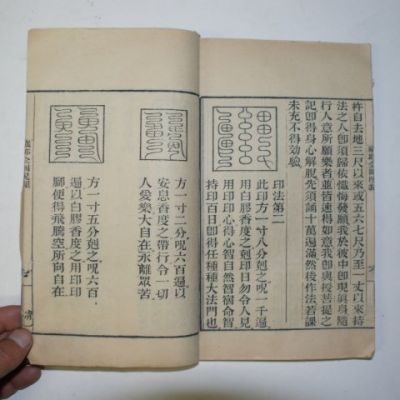 杵自去地三尺以來或五六七尺乃至一丈以來持
法之人卽須歸依懺悔發願我於彼中卽現真身隨
行人意所願樂者並皆速得如意我卽與授菩提之
記卽得身心解脫先須誦十萬遍滿然後作法若課
未充不得効驗
印法第二
此印方一寸八分剋之呪一千遍
用白膠香度之剋印日勿令人見
用印印心得心智自然智宿命智
持印百日卽得任種種大法門也
方一寸二分呪六百遍以
安息香度之帶行令一切
人愛樂大自在永離眾苦
方一寸五分剋之呪六百
遍以白膠香度之用印印
脚便得飛騰空所向自在